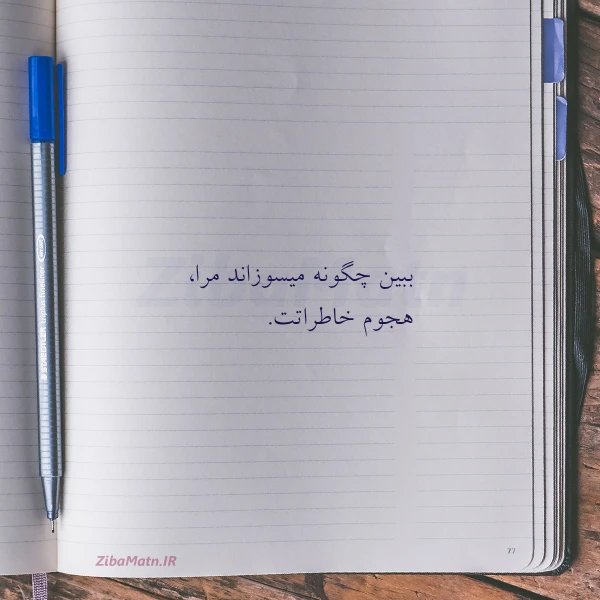 ببین چگونه میسوزاند مرا،
هجوم خاطراتت.
ZibaMatn.IR